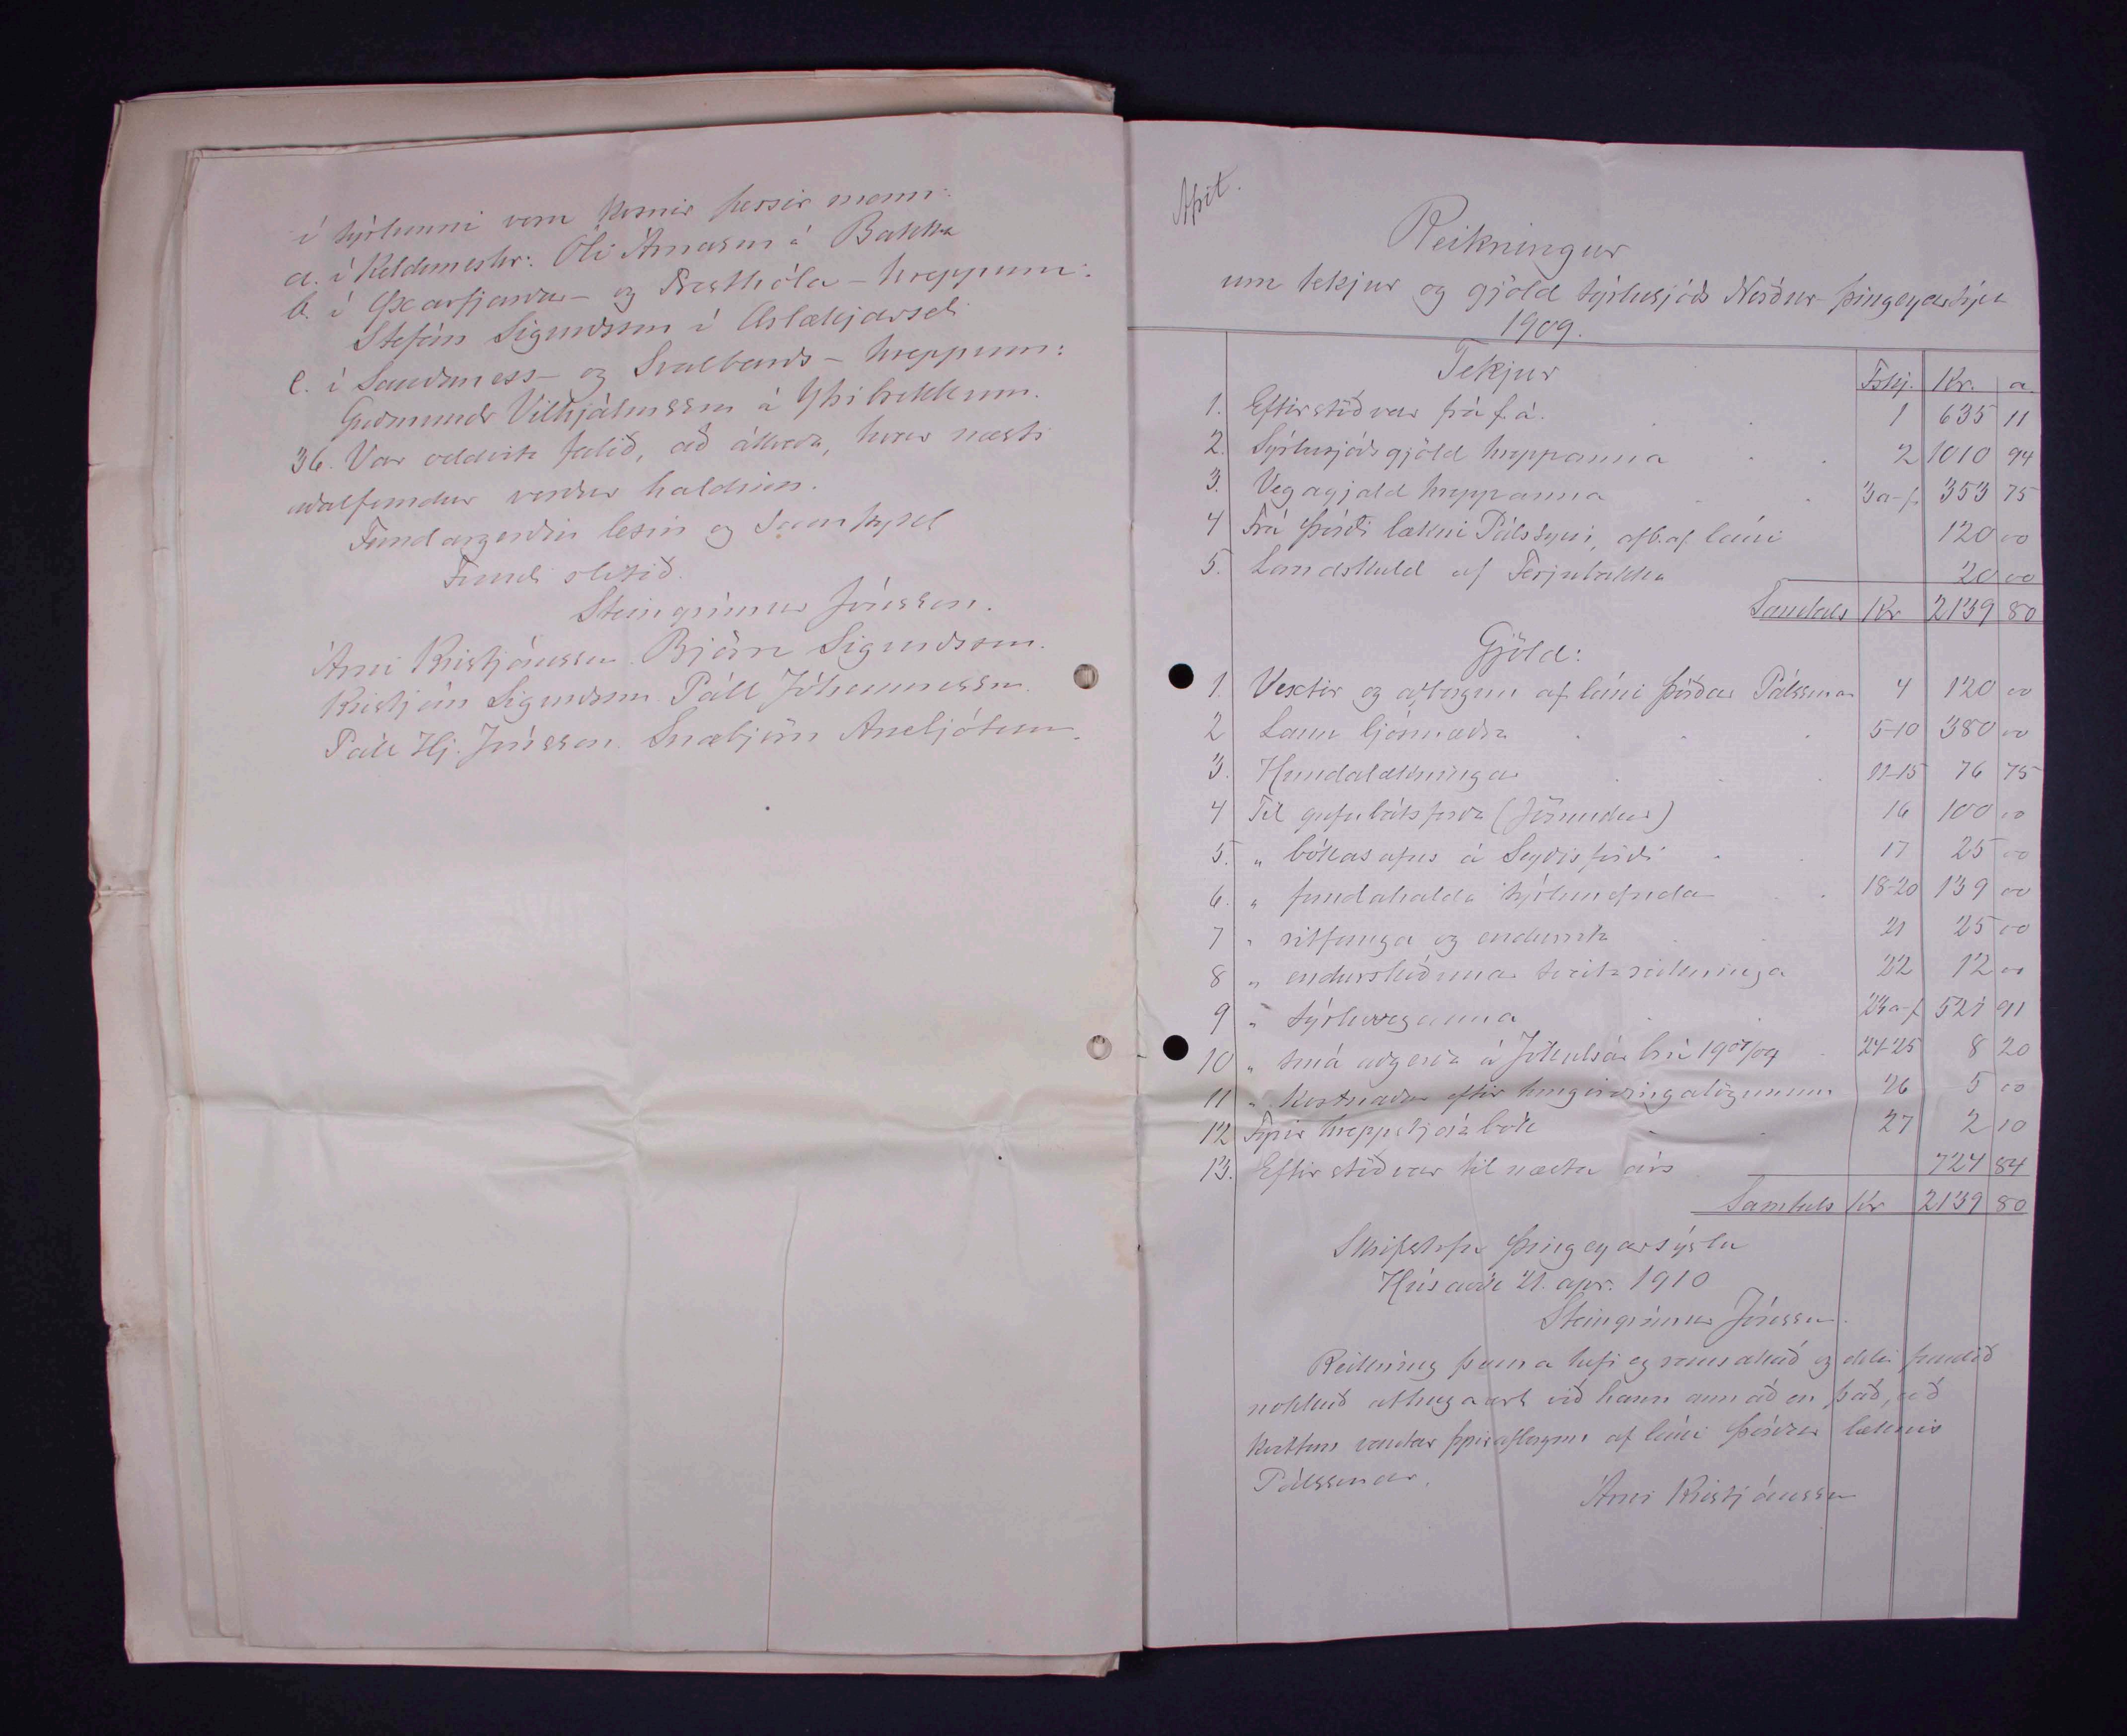 í sýslunni voru kosnir þessir menn:
a. í Keldunesshr: Óli Árnason á Bakka
b. í Øxarfjarðar- og Presthóla-hreppum:
Stefán Sigurðsson í Ærlækjarseli
c. í Sauðaness- og Svalbarðs-hreppum:
Guðmundr Vilhjálmsson á Ytribrekkum.
36. Var oddvita falið, að ákveða, hvar næsti
aðalfundur verður haldinn.
Fundargerðin lesin og samþykt
Fundi slitið.
Steingrímur Jónsson.
Árni Kristjánsson. Björn Sigurðsson.
Kristján Sigurðsson Páll Jóhannesson.
Páll Hj. Jónsson. Snæbjörn Arnljótsson.
Afrit.
Reikningur
um tekjur og gjöld sýslusjóðs Norður-Þingeyarsýslu
1909.
Tekjur Fskj. Kr. a.
1. Eftirstöðvar frá f. á. 1 635 11
2. Sýslusjóðsgjöld hreppanna 2 1010 94
3. Vegagjald hreppanna 3a-f 353 75
4 Frá Þórði lækni Pálssyni, afb. af láni 120 00
5. Landskuld af Ferjubakka 20 00
Samtals Kr 2139 80
Gjöld:
1. Vextir og afborgun af láni Þórðar Pálssonar 4 120 00
2 Laun ljósmæðra 5-10 380 00
3. Hundalækningar 11-15 76 75
4 Til gufubátsferða (Jörundur) 16 100 00
5. " bókasafns á Seyðisfirði 17 25 00
6. " fundahalda sýslunefnda 18-20 139 00
7 " ritfanga og endurrita 21 25 00
8 " endurskoðunar sveitareikninga 22 12 00
9 " sýsluveganna 23a-f 521 91
10 " smá aðgerða á Jökulsárbrú 1908/09 24-25 8 20
11 " Kostnaður eftir hengirðingalögunum 26 5 00
12 Fyrir hreppskjörbók 27 2 10
13. Eftirstöðvar til næsta árs 724 84
Samtals Kr 2139 80
Skrifstofu Þingeyarsýslu
Húsavík 21. apr. 1910
Steingrímur Jónsson.
Reikning þenna hefi eg rannsakað og ekki fundið
nokkuð athugavert við hann annað en það, að
kvittun vantar fyrir afborgun af láni Þórðar læknis
Pálssonar.
Árni Kristjánsson